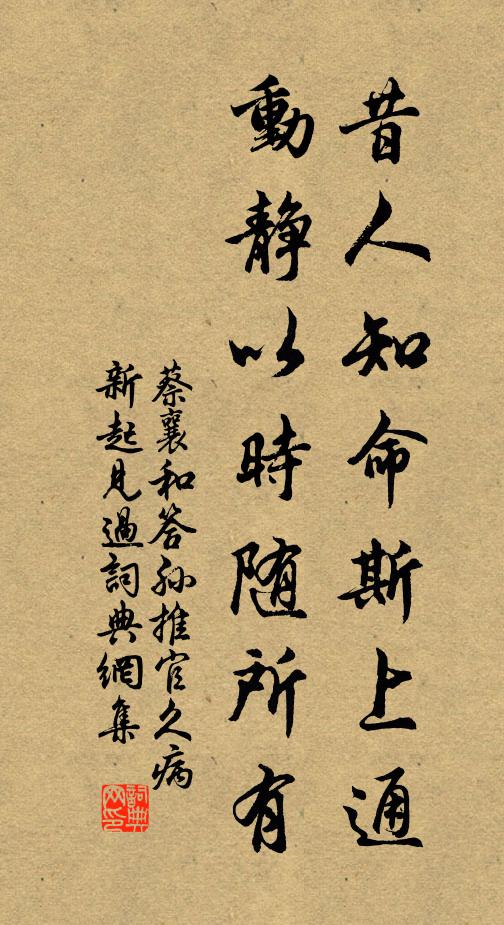 昔人知命斯上通
動靜以時随所有
蔡襄和答孙推官久病
新起見過詞典網集
詞典
网印